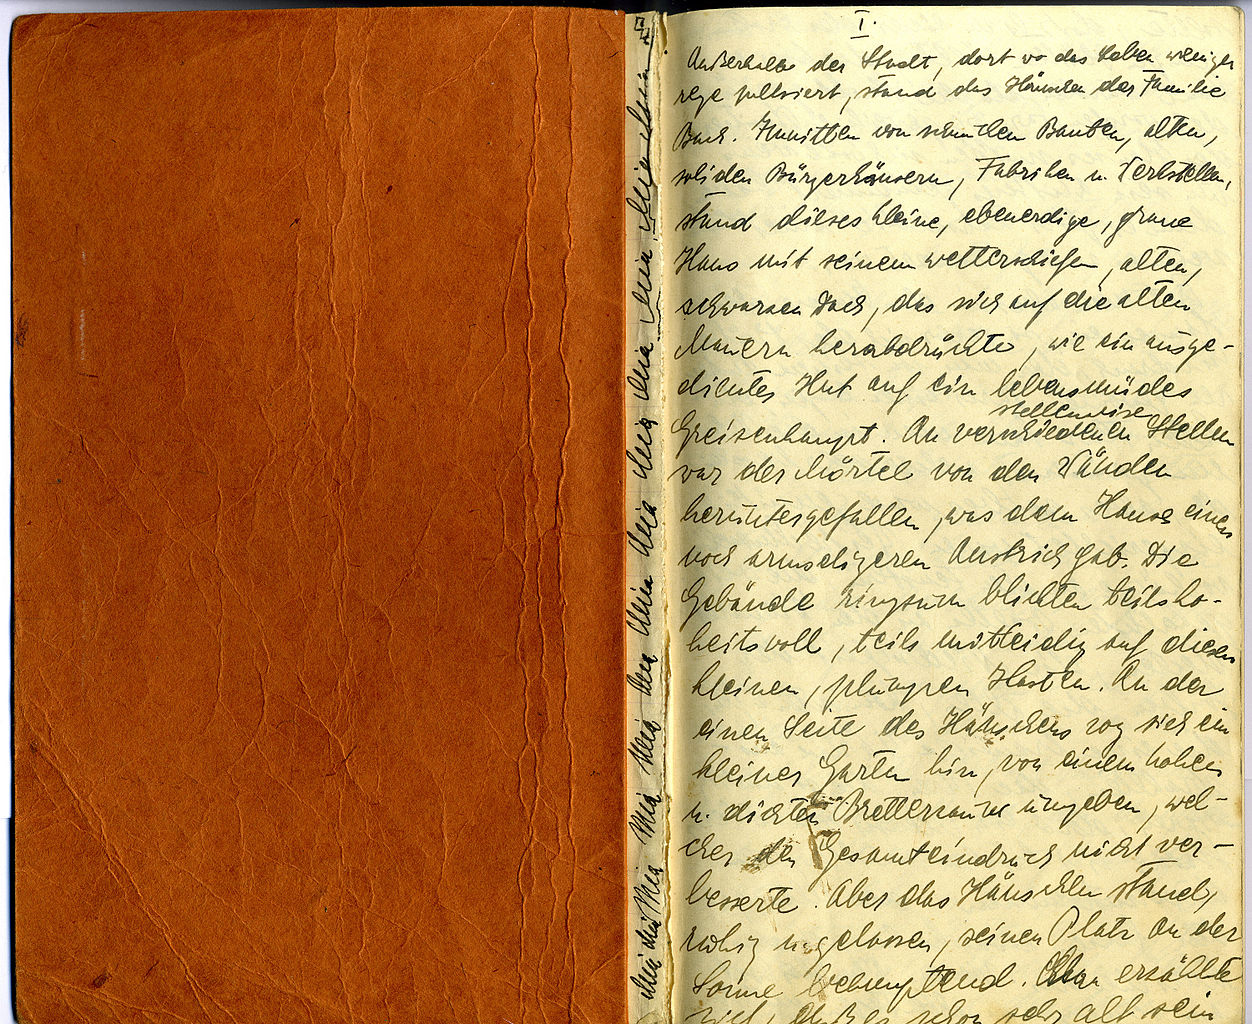 I.
Außerhalb der Stadt, dort wo das Leben weniger
rege pulsiert, stand das Häuschen der Familie
Bach. Inmitten von schmalen Bauten, alten,
soliden Bürgerhäusern, Fabriken u. Werkstellen,
stand dieses kleine, ebenerdige, graue
Haus mit seinem wetterschiefen, alten,
schwarzen Dach, das sich auf die alten
Mauern herabdrückte, wie ein ausge-
dientes Hut auf ein lebensmüdes
stellenweise
Greisenhaupt. An verschiedenen Stellen
war der Mörtel von den Wänden
heruntergefallen, was dem Hause einen
noch armseligeren Anstrich gab. Die
Gebäude ringsum blickten teils ho-
heitsvoll, teils mitleidig auf diesen
kleinen, plumpen Kasten. An der
einen Seite des Häuschens zog sich ein
kleiner Garten hin, von einem hohen
u. dichten Bretterzaune umgeben, wel-
cher den Gesamteindruck nicht ver-
besserte. Aber das Häuschen stand,
ruhig u. gelassen, seinen Platz an der
Sonne behauptend. Man erzählte
sich, daß es schon sehr alt sein
Mia Mia Mia Mia Mia Mia Mia Mia Mia Mia Mia Mia Mia Mia